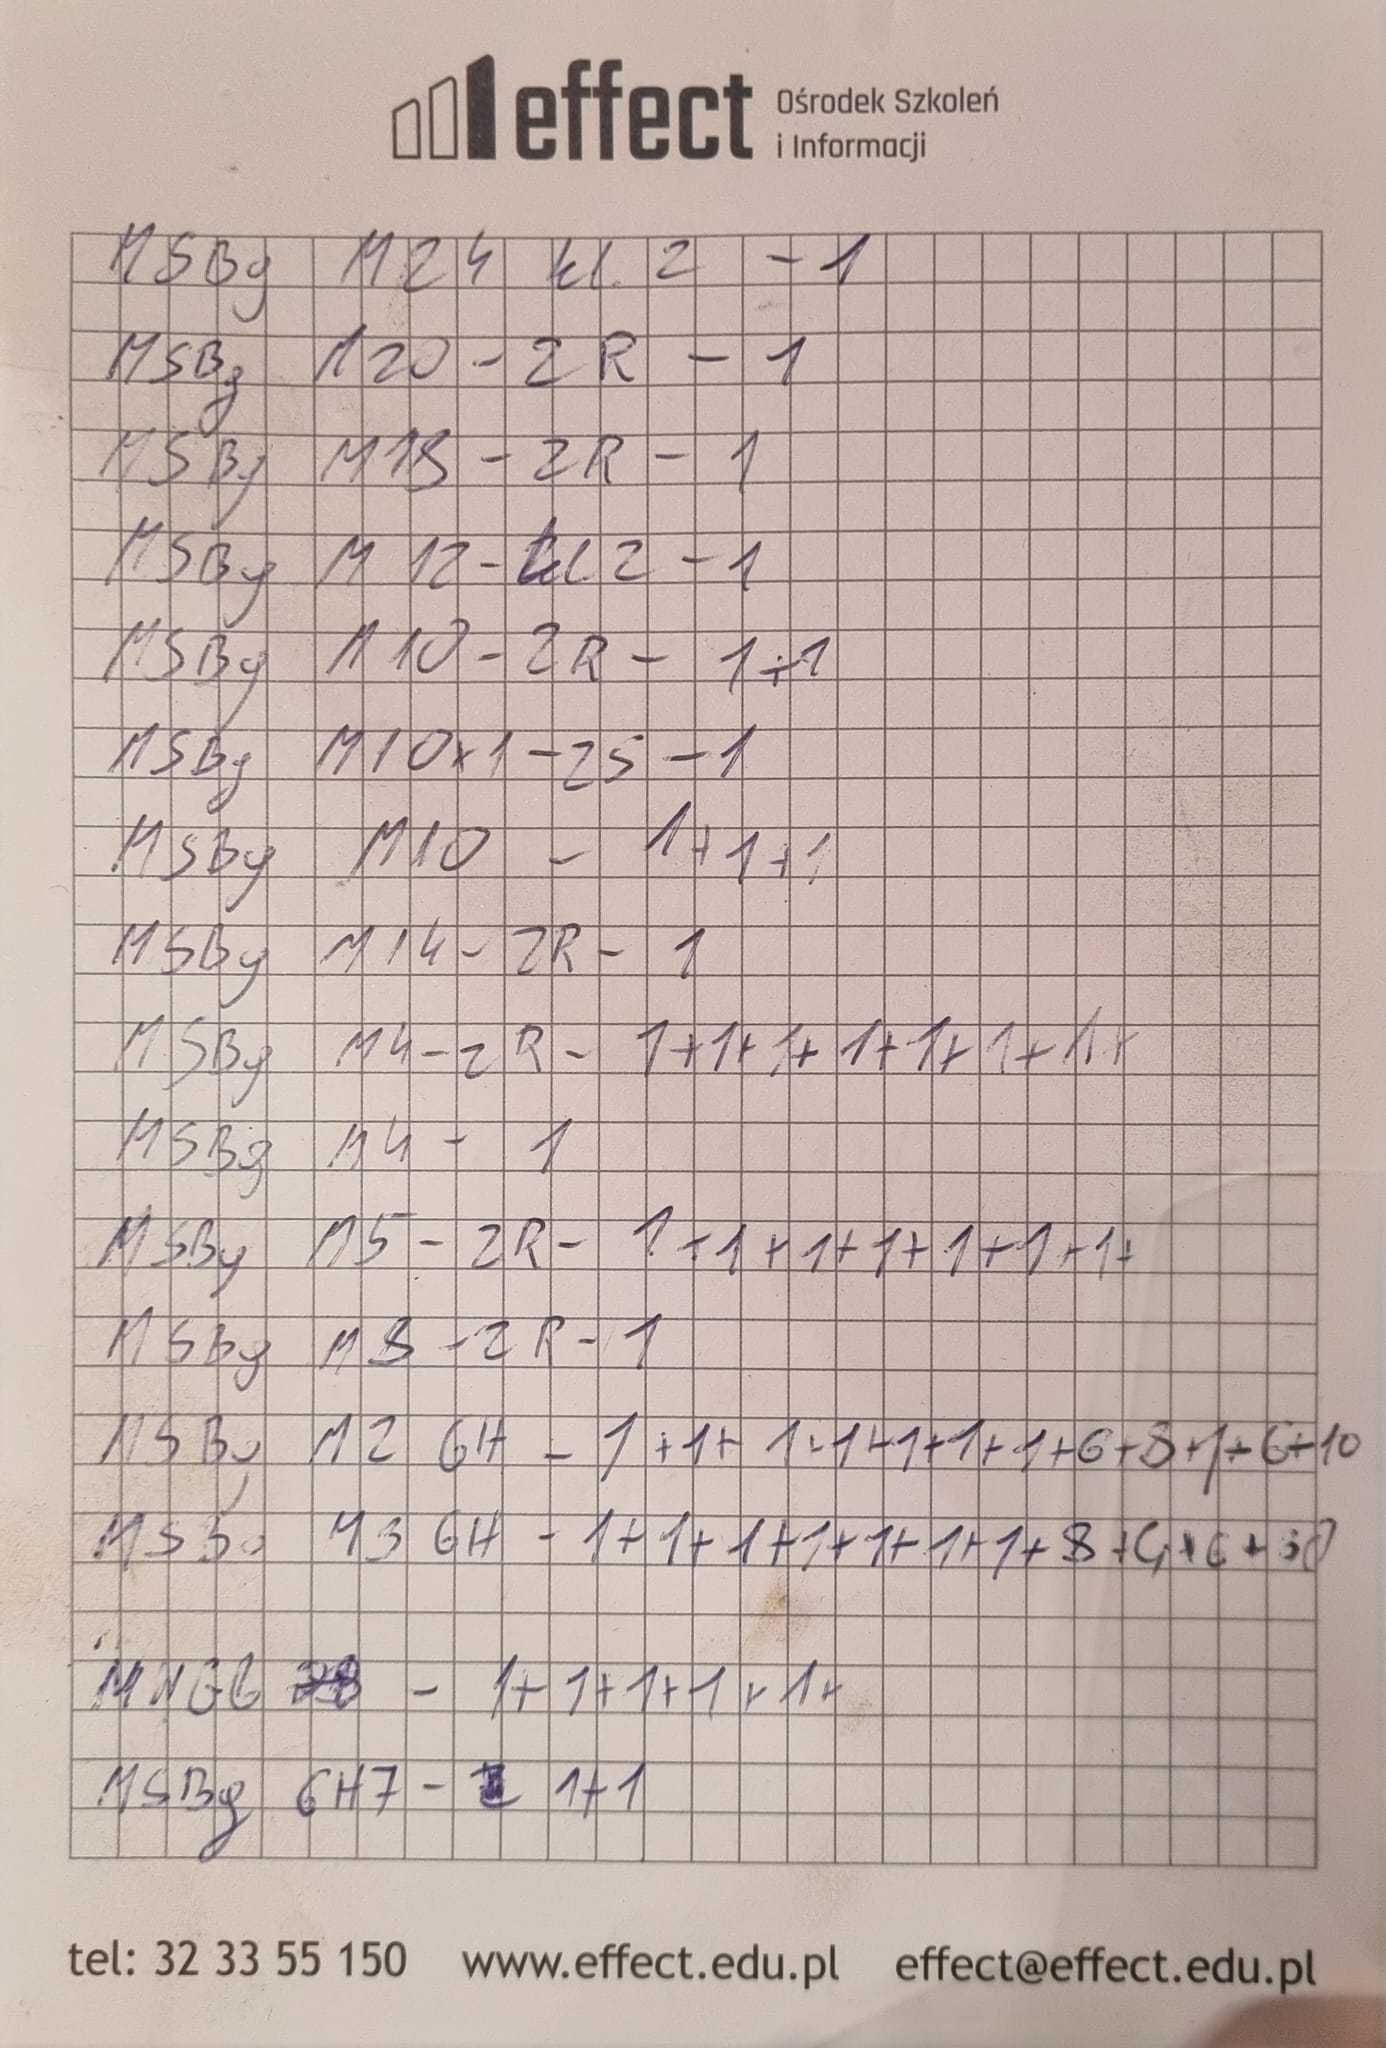 effect Ośrodek Szkoleń
i Informacji
MSBg M24 kl. 2 - 1
MSBg M20 - 2R - 1
MSBg M18 - 2R - 1
MSBg M12 - kl 2 - 1
MSBg M10 - 2R - 1+1
MSBg M10x1 - 2S - 1
MSBg M10 - 1+1+1
MSBg M14 - 2R - 1
MSBg M4 - 2R - 1+1+1+1+1+1+1+
MSBg M4 - 1
MSBg M5 - 2R - 1+1+1+1+1+1+1+
MSBg M8 - 2R - 1
MSBg M2 6H - 1+1+1+1+1+1+1+6+8+1+6+10
MSBg M3 6H - 1+1+1+1+1+1+1+8+
- 1+1+1+1+1+
MSBg 6H7 - 1+1
tel: 32 33 55 150 www.effect.edu.pl effect@effect.edu.pl